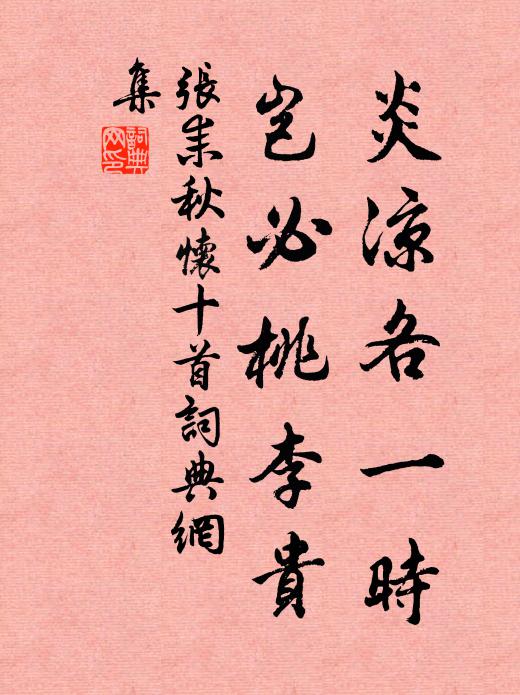 炎涼各一時
豈必桃李貴
張耒秋懷十首詞典網
集
詞典網印